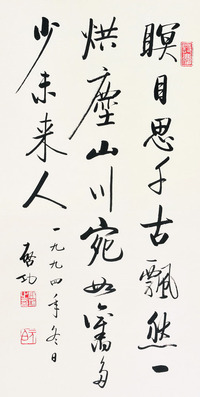 瞑目思千古飘然一
烘尘山川宛如旧多
少未来人
一九九四年冬日
启功